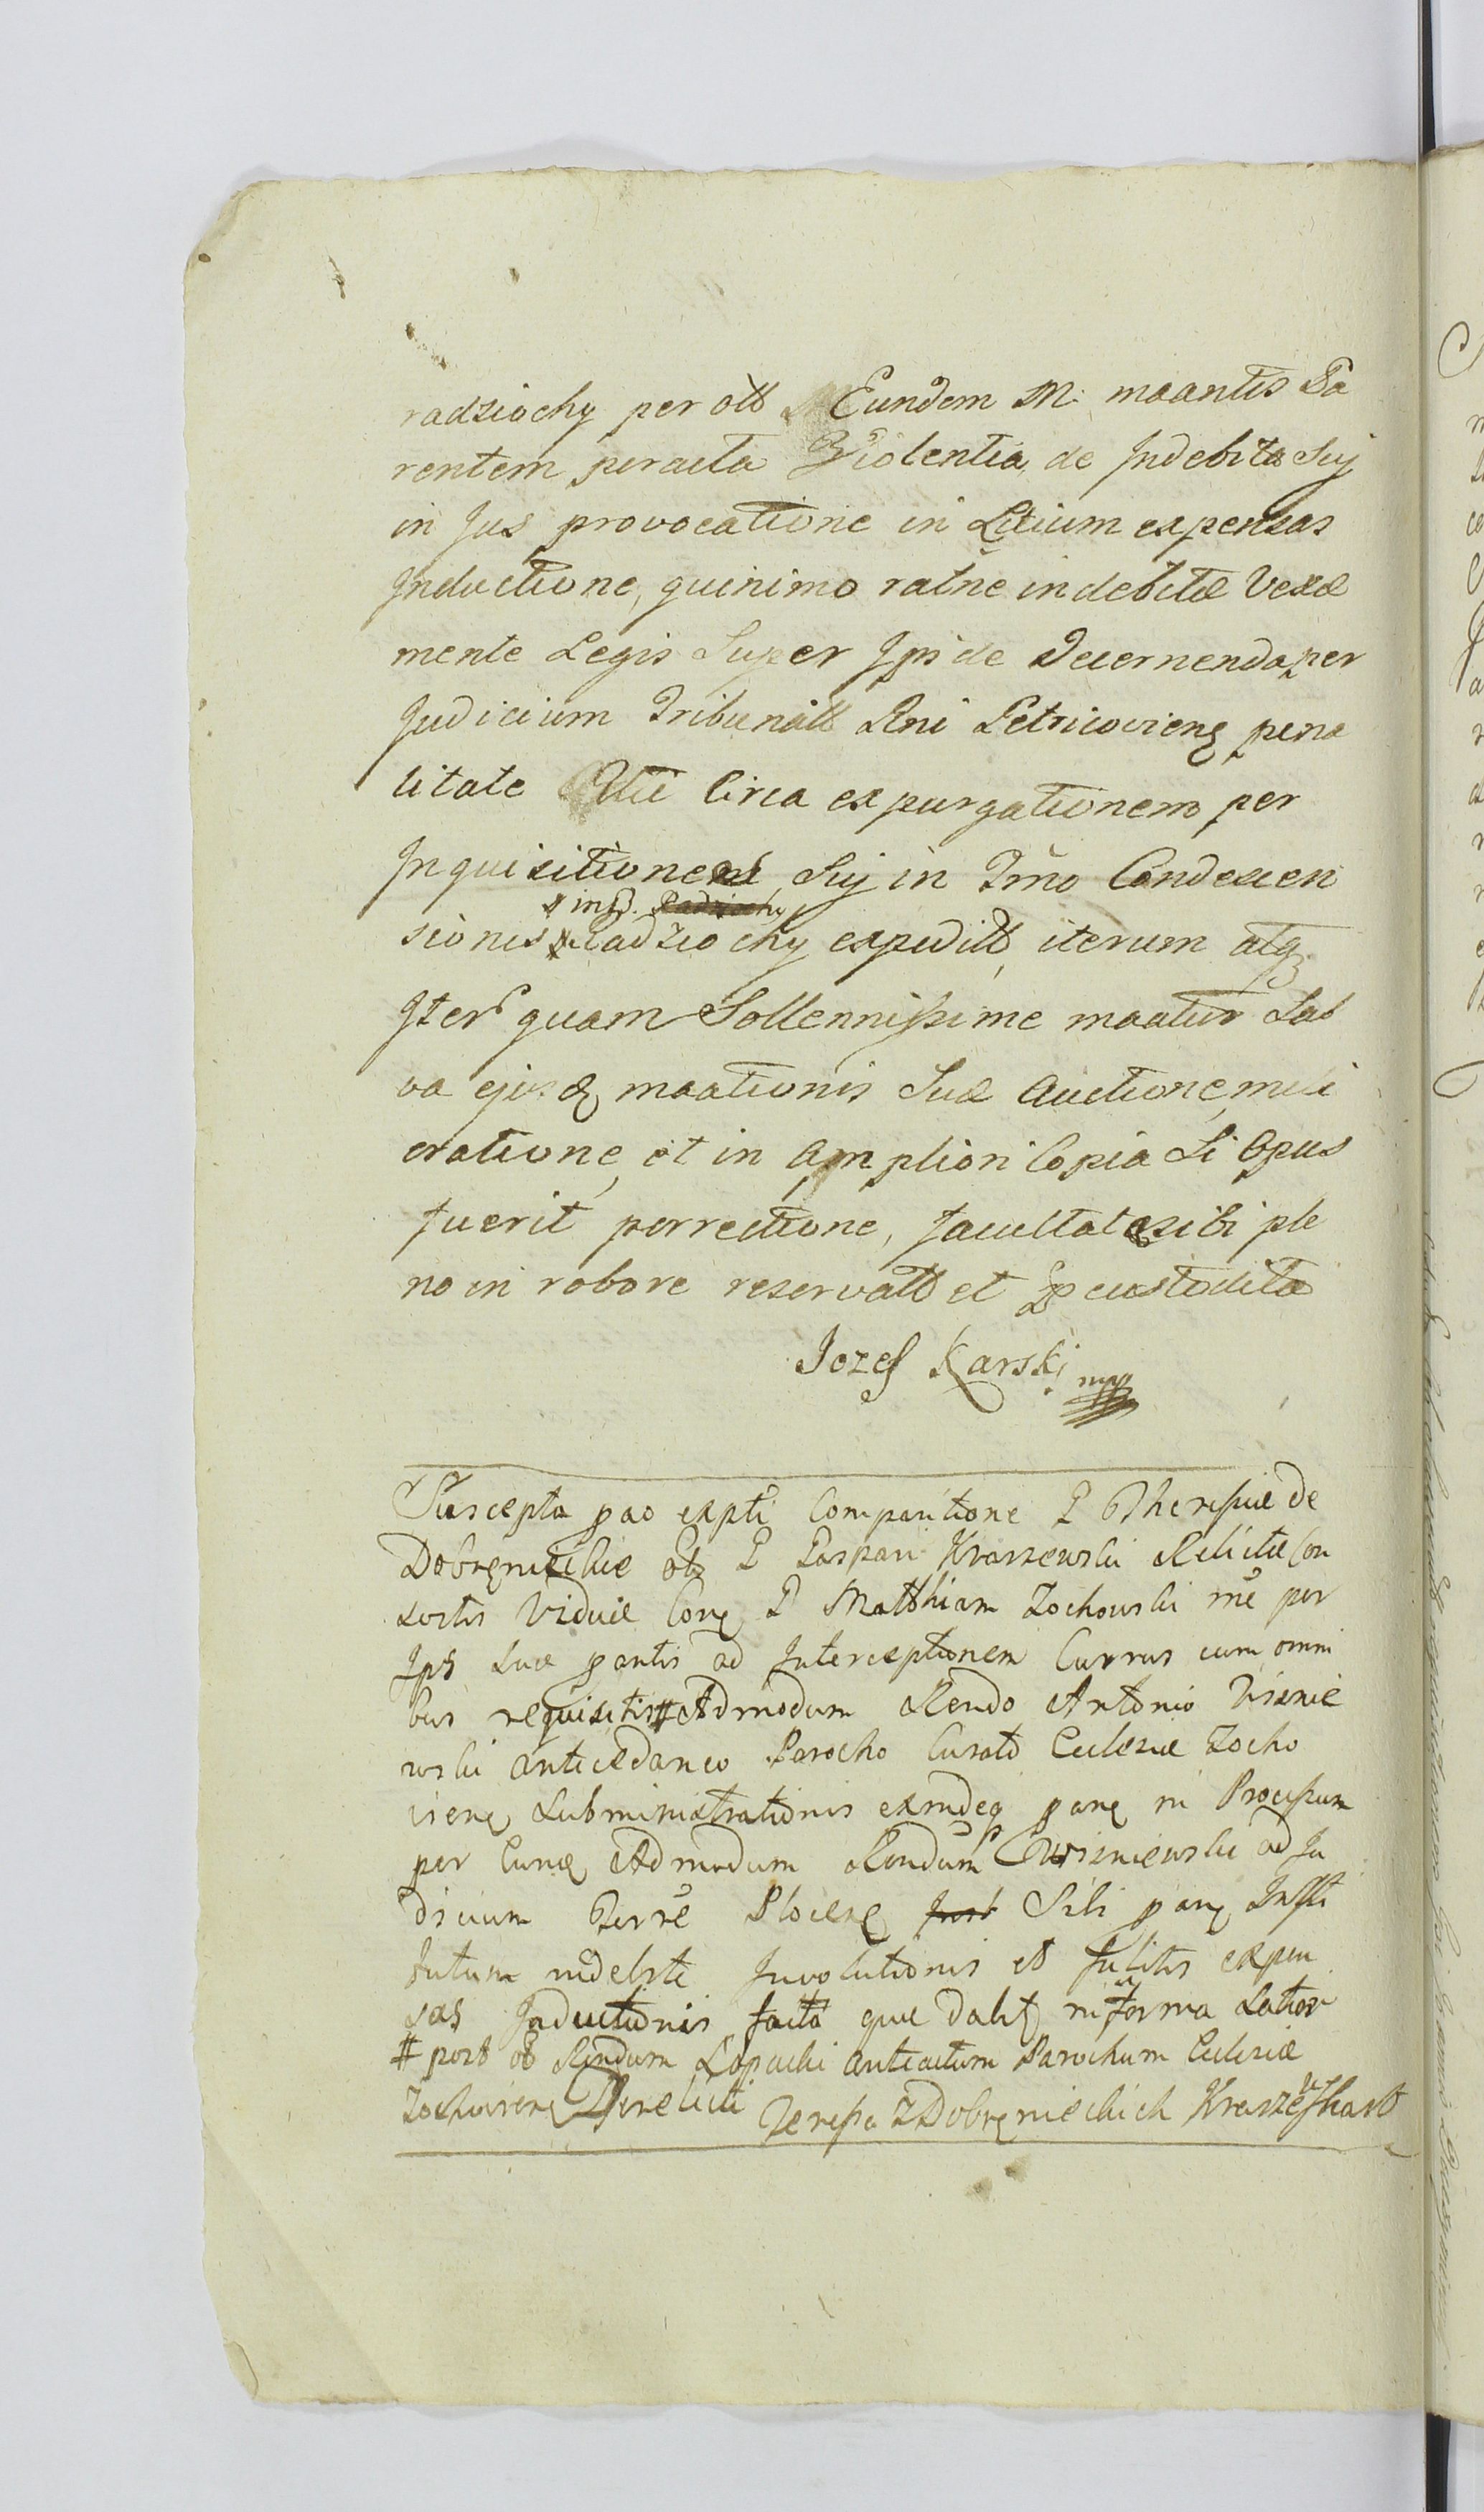 radziochy per olt Eundem M. maantis Pa
rentem peracta Violentia, de Indebita Sui
in Jus provocatione in Litium expensas
Inductione, quinimo ratne indebitæ Vexæ
mente Legis Super Ipside Decernenda per
Judicium Tribunalt Rni Petricoviens pena
litate Actu Circa expurgationem per
Inquisitionem Suj in Tmno Condescen
x insd. Radziochy
sionis x Radziochy expedilt, iterum atq
Iter quam Sollennissime maatur Sal
va ejusd maationis Suæ Auctione, meli
oratione, et in Ampliori Copia Si Opus
fuerit porrectione, facultate sibi ple
no in robore reservatt et custodita
Jozef Karski mpp
Suscepta pao expti Comparitione G Theressiæ de
Dobrzenieckie olt G Gaspari Kraszewski Relictæ Con
sortis Viduæ Cong G Matthiam Zochowski me per
Ips Sua pantis ad Interceptionem Currus cum omni
bus requisitis # Admodum Rendo Antonio Wisnie
wski antecedaneo Parocho Curato Eclesiæ Zocho
viens Subministrationis exindeq pang in Processum
per Eund Admodum Rendum Wisniewski ad Ju
dicium Terre Plocens Just Sibi pang Insti
tutum indebite Involutionis et in Litis expen
sas Inductionis facta que dabit in forma Latior
# post olt Rendum Lopacki anteactum Parochum Eclesiæ
Zochoviens Derelicti Teressa z Dobrzenieckich Kraszewska